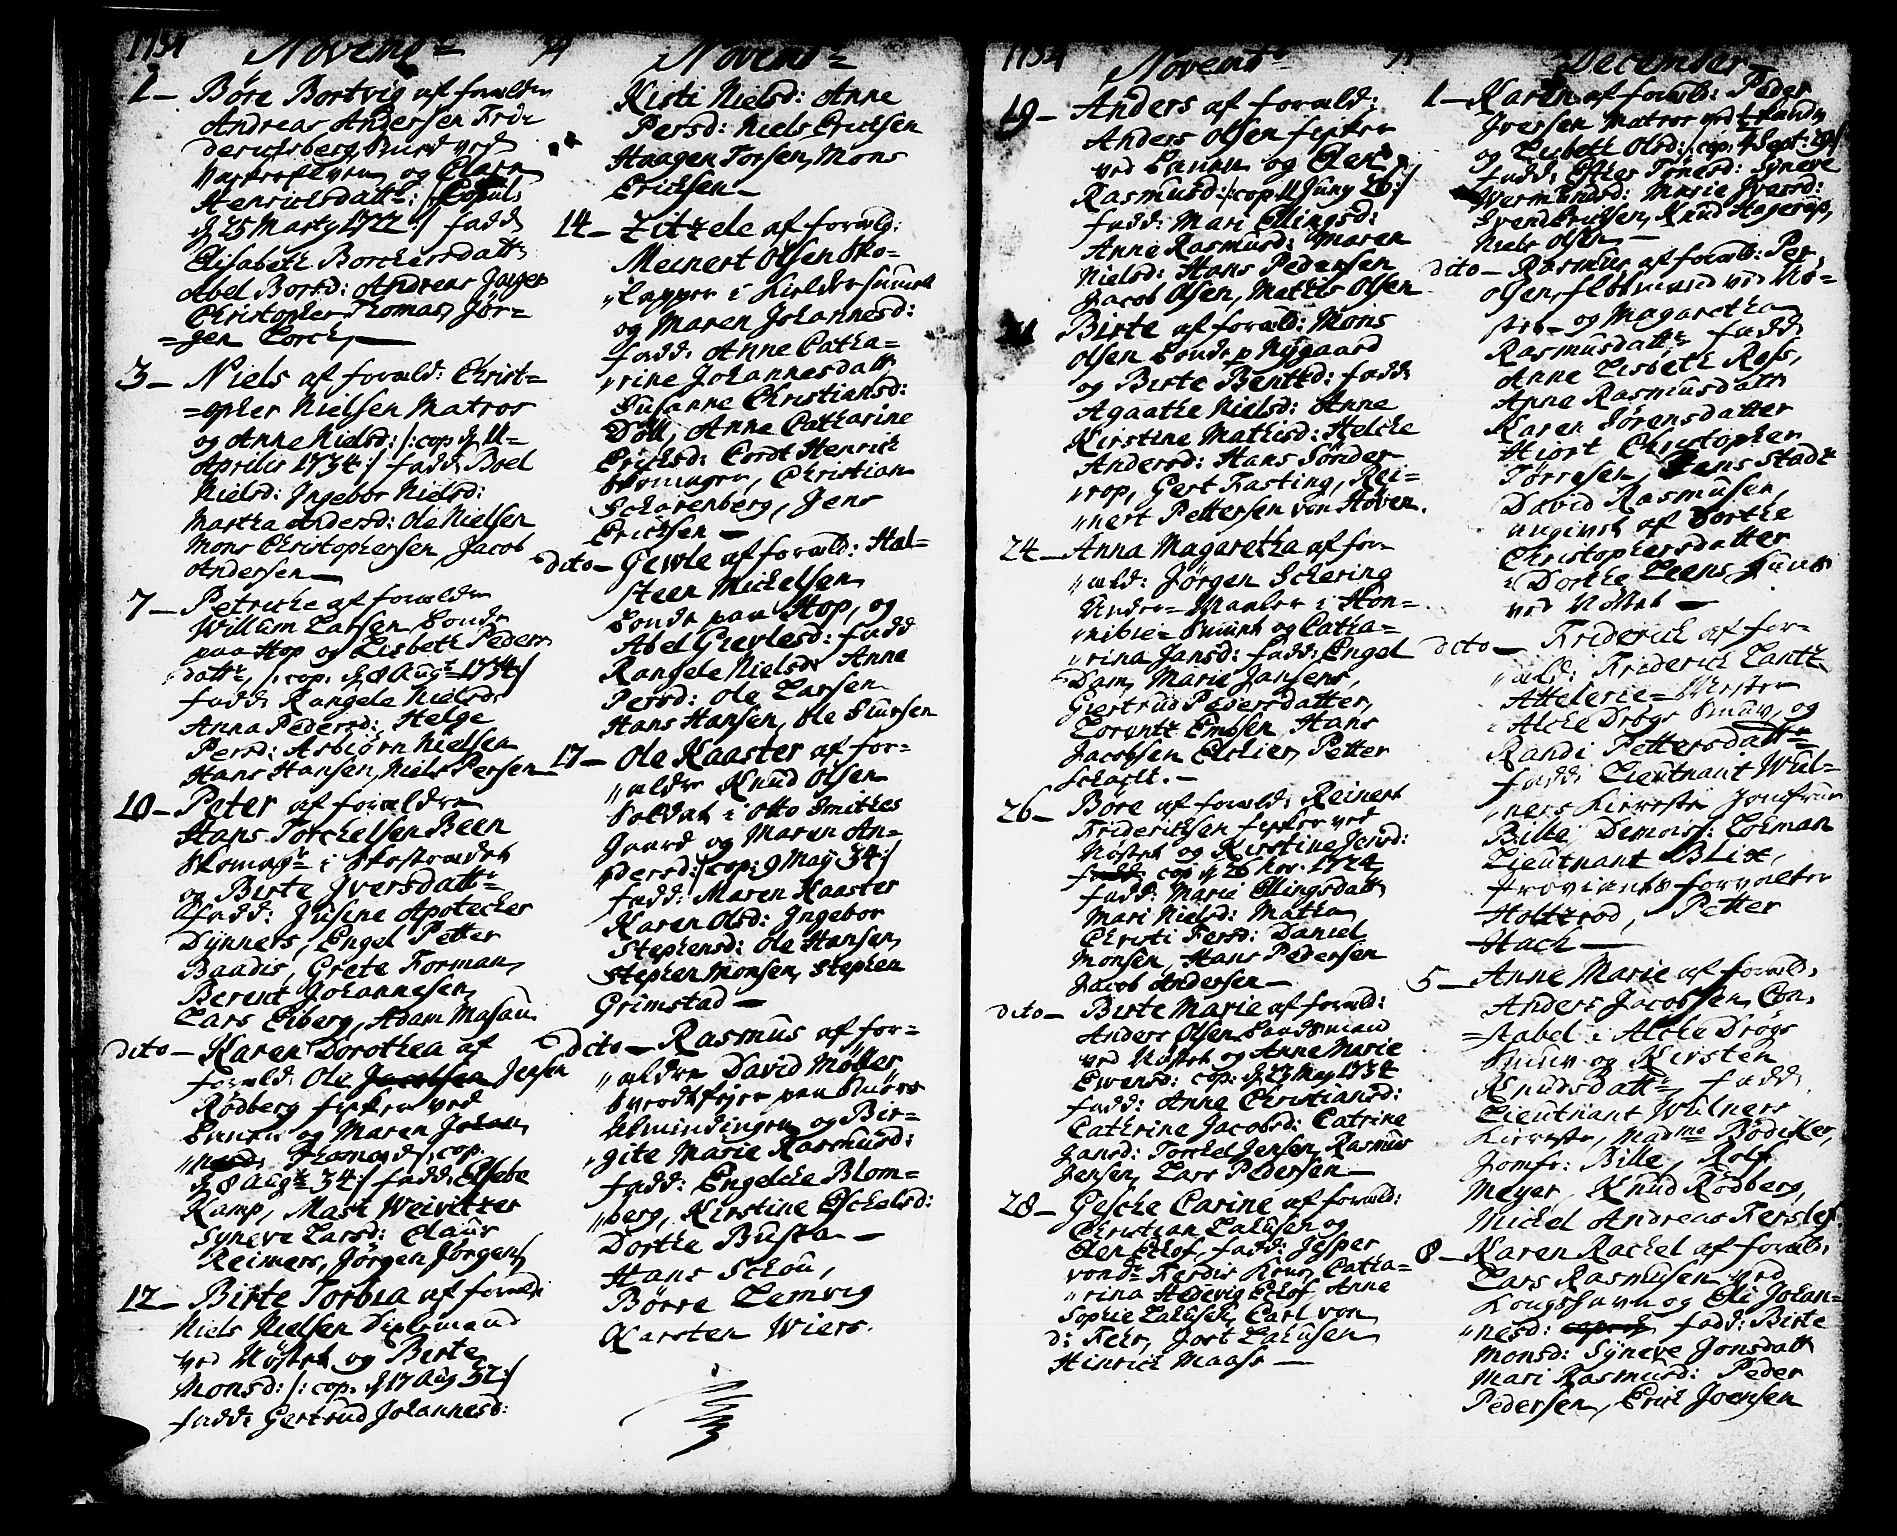 1734 Novembr
2 – Böre Bortvig af forældre
Andreas Andersen Fride
derichsberg
og Claren
Henrichsdattr: /: Copul:
d 25 Marty 1722 :/ fadd:
Elisabeth Borchersdattr
Abel Borsd: Andreas Jæger
Christopher Thomas, Jör-
=gen Lorch, –
3 – Niels af foræld: Christ-
=opher Nielsen Matros
og Anne Nielsd: /: cop d 11-
Aprilis 1734 :/ fadd: Boel
Nielsd: Ingebor Nielsd:
Martha Andersd: Ole Nielsen
Mons Christophersen Jacob
Andersen –
7 – Petriche af forældre
Willum Larsen Bonde
paa Hop og Lisbeth Peders
dattr, /: cop. d 8 Augst 1734 :/
fadd: Rangele Nielsd:
Anna Pedersd: Helge
Persd: Asbiörn Nielsen
Hans Hansen, Niels Persen –
10 – Peter af forældre
Hans Torchelsen Been
Skomagr i Skostrædet
og Birte Iversdattr
fadd: Jusine Apotecher
Dÿnners, Engel Petter
Baudis, Grete Forman,
Berent Johannesen,
Lars Eiberg, Adam Masau.
dito – Karen Dorothea af
foræld: Ole Jacobsen Jensen
Rödberg fisker ved
og Maren Johan
Thomasd: /: cop.
d 8 Augst 34 :/ fadd: Elsebe
Kamp, Mari Weivitzer
Syneve Larsd: Claus
Reimers, Jörgen Jörgens,
12 – Birte Torbra af foræld:
Niels Nielsen
ved Nöstet og Birte
Monsd: /: cop. d 17 Aug 32 :/
fadd: Gertrud Johannesd:
Novembr
Kisti Nielsd: Anne
Persd: Niels Erichsen
Haagen Torsen, Mons
Erichsen –
14 – Zitzele af foræld:
Meinert Olsen Sko-
„lapper i
og Maren Johannesd:
fadd: Anne Catha-
„rine Johannesdattr,
Susanne Christiansd:
Döll, Anne Catharine
Erichsd: Cordt Henrich
Skomager, Christian
Scharenberg, Jens
Erichsen –
dito – Gewle af foræld: Hal-
steen Michelsen
Bonde paa Hop, og
Abel Grevlesd: fadd
Rangele Nielsd: Anne
Persd: Ole Larsen
Hans Hansen, Ole Siursen
17 – Ole Kaaster af for-
„ældre Knud Olsen
Soldat i Otto Smithes
Gaard og Maren An-
dersd: /: cop: 9 May 34 :/
fadd: Maren Kaaster
Karen Olsd: Ingebor
Stephensd: Ole Hansen,
Stephen Monsen, Stephen
Grimstad –
dito – Rasmus af for-
„ældre David Möller
paa
Almindingen og Bir-
„gite Marie Rasmusd:
fadd: Engelche Blom-
„berg, Kirstine Eschelsd:
Dorthe Busta –
Hans Schou,
Börre Lemvig
Karsten Wiers.
1734 Novembr
19 – Anders af foræld:
Anders Olsen fisker
ved og Elen
Rasmusd: /: cop 11 Juny 26 :/
fadd: Mari Ellingsd:
Anne Rasmusd: Maren
Nielsd: Hans Pedersen
Jacob Olsen, Mathis Olsen
Birte af foræld: Mons
Olsen Bonde p Nÿgaard
og Birte Bentsd: fadd:
Agaathe Nielsd: Anne
Kirstine Mathisd: Helche
Andersd: Hans Sönder
„rop, Gert Fasting, Rei-
„nert Pettersen von Hoven.
24 – Anna Magaretha af for-
„æld: Jörgen Schering
Under-Maaler i
og Catha-
„rina Jansd: fadd: Engel
Dam, Marie Jansens,
Giertrud Pedersdatter,
Lorentz Embsen, Hans
Jacobsen Elslier, Petter
Schacht. –
26 – Böre af foræld: Reinert
Frideriksen fisker ved
Nöstet og Kirstine Jensd:
fadd: cop d 26 Nov. 1724
fadd: Marie Ellingsdattr
Mari Nielsd: Matha
Christi Fersd: Daniel
Monsen, Hans Pedersen
Jacob Andersen –
dito – Birte Marie af foræld:
Anders Olsen
ved Nöstet og Anne Marie
Ewensd: cop: d 23 May 1734
fadd: Anne Christiansd:
Cathrine Jacobsd: Catrine
Jansd: Torchel Jensen, Rasmus
Jensen, Lars Pedersen –
28 – Gesche Carine af foræld:
Christian Lakusen og
Elen Elof, fadd: Jesper
vondr Ferdis Krus, Catha-
„rina Hedevig Elof, Anne
Sophie Lakusch, Carl von
d: Fehr, Jost Lakusen
Hinrich Maass –
December
1 – Karen af foræld: Peder
Iversen Matros ved
og Lisbeth Olsd: /: cop. 4 Sept: 29 :/
fadd: Tönesd: Syneve
Wermundsd: Marie Iversd:
Svend Erichsen, Knud Hagerup,
Niels Olsen –
dito – Rasmus af foræld: Per
Olsen, ved Nö-
stet og Magaretha
Rasmusdattr fadd:
Anne Lisbeth Ross,
Anna Rasmusdattr
Karen Sörensdatter
Hiort Christopher
Törresen, Hans Stadt
David Rasmusen,
angivet af Dorthe
Christophersdatter
i Dorthe Leens Huus
ved Nöstet –
dito – Friderich af for-
„æld: Friderich Lantz
Attelerie-Mester
i Alche Drögs, og
Randi Pettersdattr
fadd: Lieutnant Wul-
„ners Kierreste Jomfrue
Bille Demois: Lohman
Lieutnant Blix,
Proviants forvalter
Holtzrod, Petter
Hach –
5 – Anne Marie af foræld:
Anders Jacobsen, Con-
=stabel i Alche Drögs
og Kirsten
Knudsdattr fadd:
Lieutnant Wulners
Kierreste, Madme Bödiker,
Jomfr: Bille, Rolf
Meyer, Knud Rödberg,
Michel Andreas Ferslef
8 – Karen Rachel af foræld:
Lars Rasmusen ved
Kongshavn og Eli Johan-
„nesd: fadd: Birte
Monsd: Syneve Jonsdattr
Mari Rasmusd: Peder
Pedersen, Erich Joensen